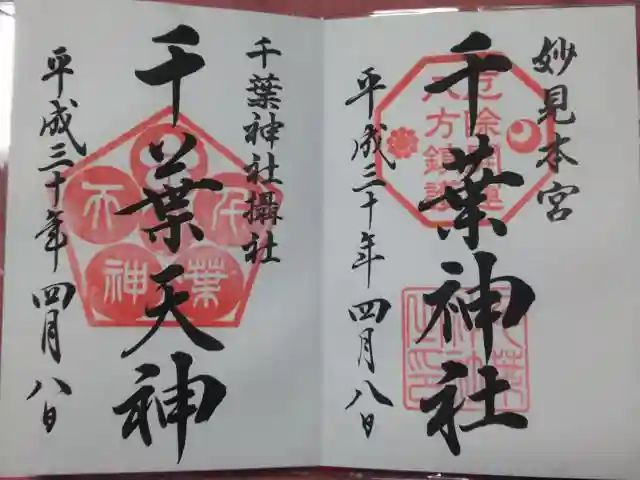 妙見本宮
千葉神社
平成三十年四月八日
危除開運
八方鎮護
千葉神社摂社
千葉天神
平成三十年四月八日
千葉天神